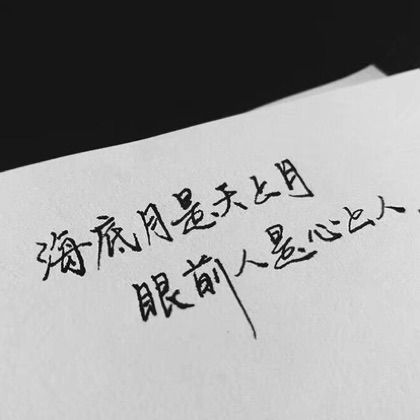 海底月是天上月
眼前人是心上人.